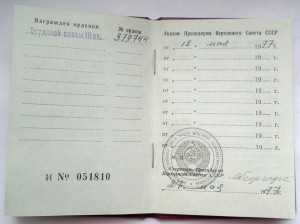 Награжден орденом
№ орден
Трудовой славы III ст.
379744
И № 051810
Указом Президиума Верховного Совета СССР
от 18 мая 1977 г.
от 19 г.
от 19 г.
от 19 г.
от 19 г.
от 19 г.
от 19 г.
от 19 г.
М. П.
Секретарь Президиума
Верховного Совета СССР
27 мая 1977 г.